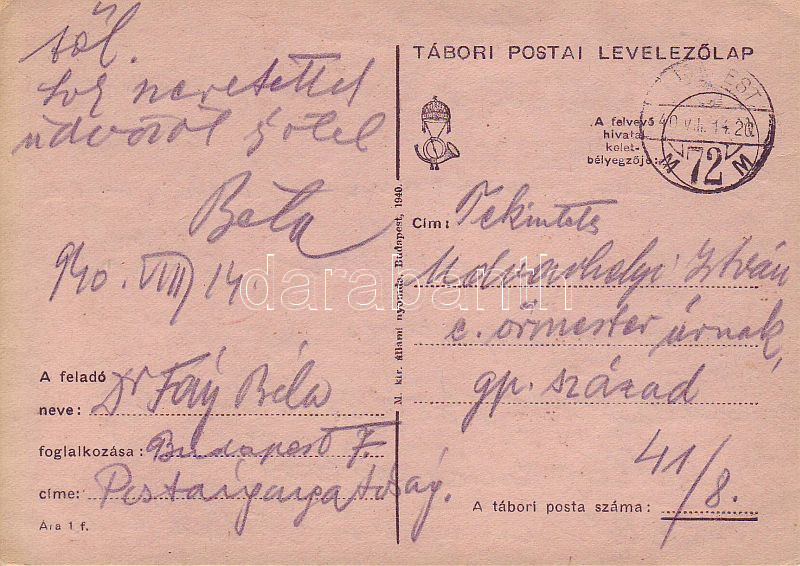 től.
Sok szeretettel
üdvözöl és ölel
Béla
940. VIII 14.
A feladó
neve: Dr Fáy Béla
foglalkozása: Budapest F.
címe: Postaigazgatóság.
Ára 1 f.
M. kir. állami nyomda, Budapest, 1940.
TÁBORI POSTAI LEVELEZŐLAP
A felvevő
hivatal
kelet-
bélyegzője:
40. VIII. 14. 20
M 72 M
Cím: Tekintetes
Udvarhelyi István
c. őrmester úrnak,
gp. század
41/8.
A tábori posta száma:
darabanth